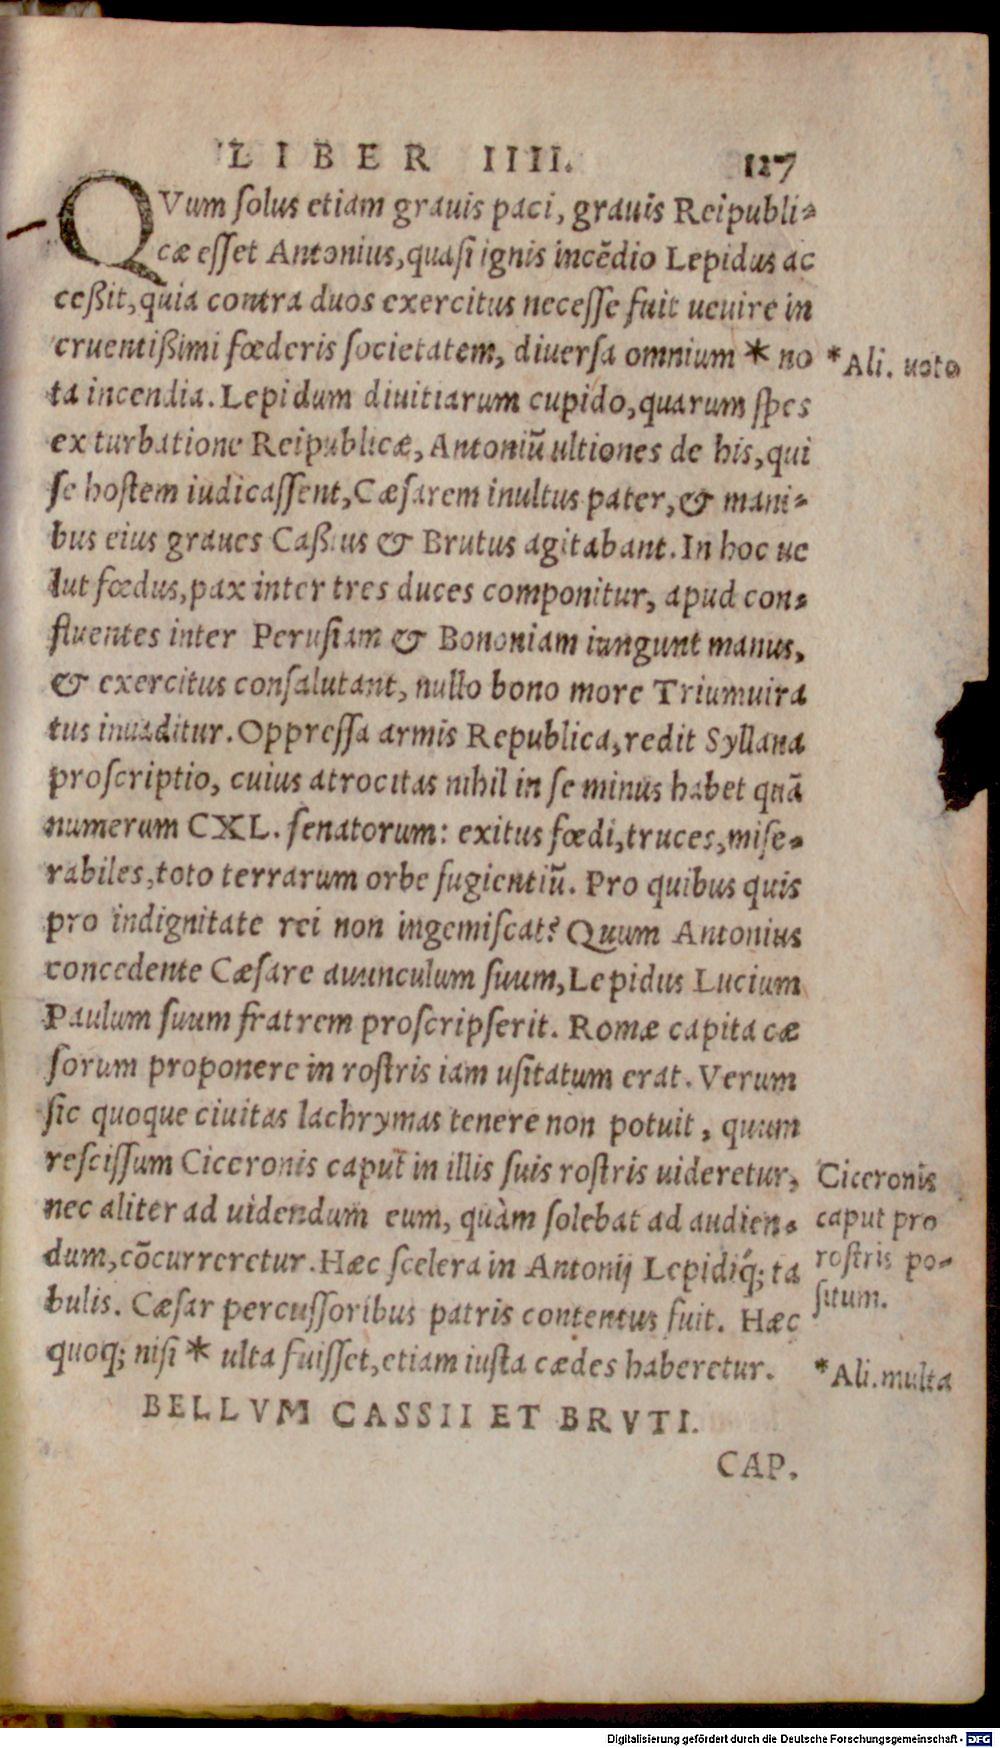 LIBER IIII. 127
QVum ſolus etiam grauis paci, grauis Reipubli-
cæ eſſet Antonius, quaſi ignis incẽdio Lepidus ac
ceßit, quia contra duos exercitus neceſſe fuit uenire in
cruentißimi fœderis ſocietatem, diuerſa omnium * no
*Ali. uota
ta incendia. Lepidum diuitiarum cupido, quarum ſpes
ex turbatione Reipublicæ, Antoniũ ultiones de his, qui
ſe hoſtem iudicaſſent, Cæſarem inultus pater, & mani-
bus eius graues Caßius & Brutus agitabant. In hoc ue
lut fœdus, pax inter tres duces componitur, apud con-
fluentes inter Peruſiam & Bononiam iungunt manus,
& exercitus conſalutant, nullo bono more Triumuira
tus inuaditur. Oppreſſa armis Republica, redit Syllana
proſcriptio, cuius atrocitas nihil in ſe minus habet quã
numerum CXL. ſenatorum: exitus fœdi, truces, miſe-
rabiles, toto terrarum orbe fugientiũ. Pro quibus quis
pro indignitate rei non ingemiſcat? Quum Antonius
concedente Cæſare auunculum ſuum, Lepidus Lucium
Paulum ſuum fratrem proſcripſerit. Romæ capita cæ
ſorum proponere in roſtris iam uſitatum erat. Verum
ſic quoque ciuitas lachrymas tenere non potuit, quum
reſciſſum Ciceronis caput in illis ſuis roſtris uideretur,
nec aliter ad uidendum eum, quàm ſolebat ad audien-
dum, cõcurreretur. Hæc ſcelera in Antonij Lepidiq́; ta
bulis. Cæſar percuſſoribus patris contentus fuit. Hæc
quoq; niſi * ulta fuiſſet, etiam iuſta cædes haberetur.
Ciceronis
caput pro
roſtris po-
ſitum.
*Ali. multa
BELLVM CASSII ET BRVTI.
CAP.
Digitalisierung gefördert durch die Deutsche Forschungsgemeinschaft - DFG